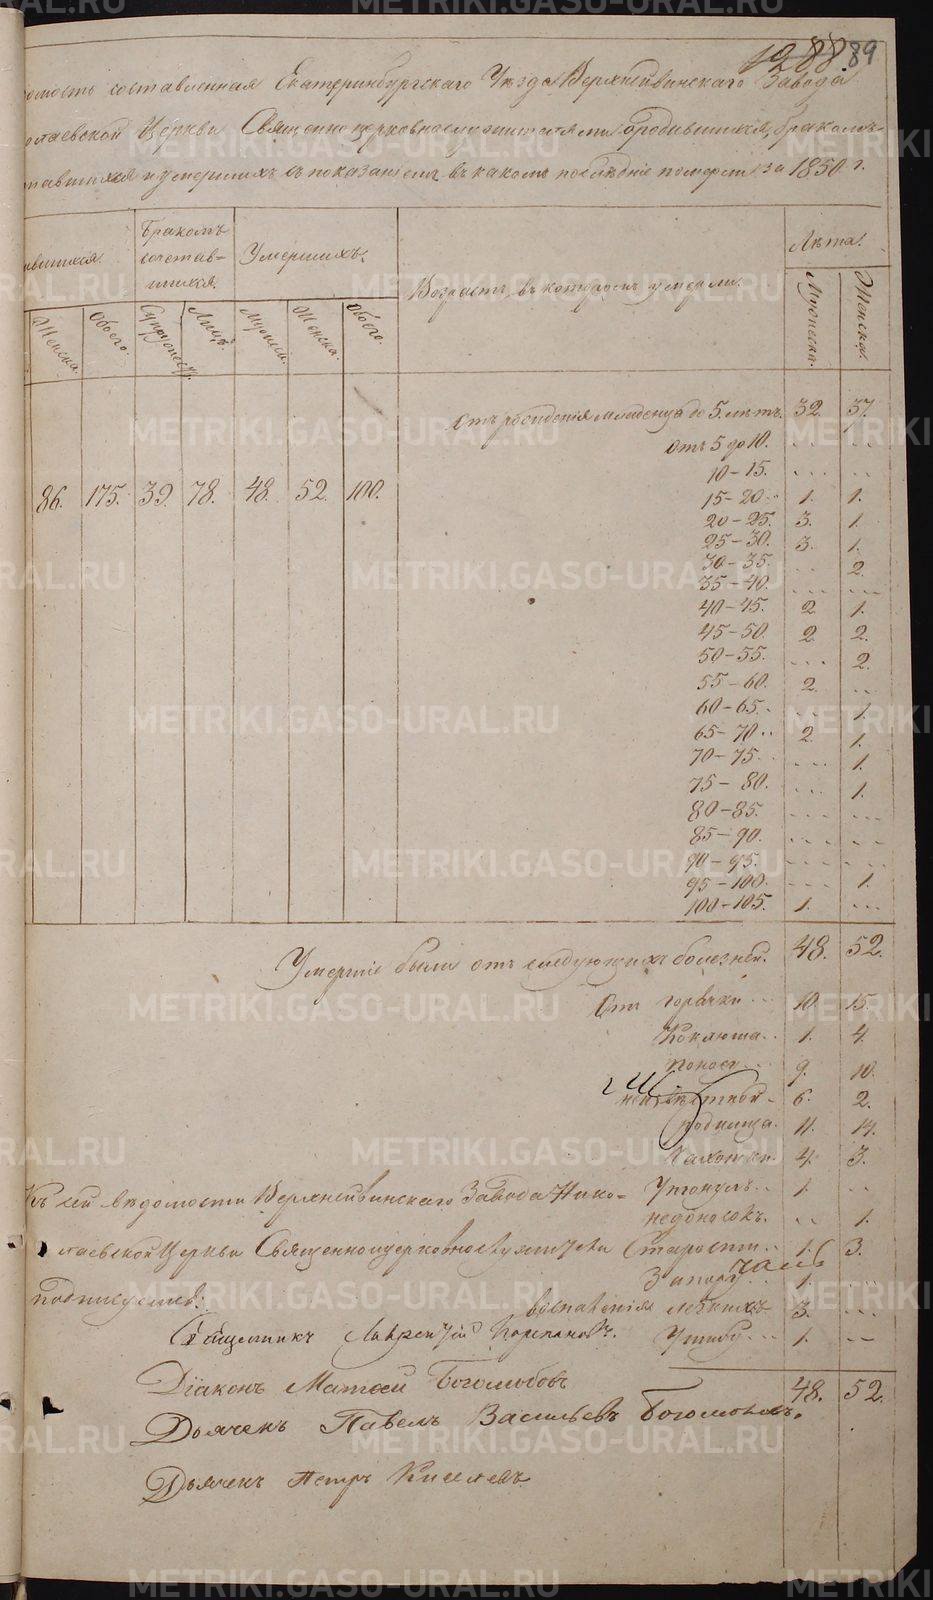 1288. 89
омость составленная Екатеринбургскаго Уѣзда Верхнейвинскаго Завода
олаевской Церкви Священноцерковнослужителями о родившихся, бракомъ
тавшихся и умершихъ съ показаніемъ въ какомъ послѣдніе померли за 1850 г.
ившихся. Бракомъ сочетав- шихся. Умершихъ. Возрастъ, въ которомъ умерли. Лѣта.
Женска. Обоего. Супружеств. Лицъ. Мужеск. Женска. Обоего. Мужеска. Женска.
Отъ рожденія младенца до 5. лѣтъ. 32. 37.
Отъ 5 до 10. ... ...
10-15. ... ...
86. 175. 39. 78. 48. 52. 100. 15-20. 1. 1.
20-25. 3. 1.
25-30. 3. 1.
30-35. ... 2.
35-40. ... ...
40-45. 2. 1.
45-50. 2. 2.
50-55. ... 2.
55-60. 2. ...
60-65. ... 1.
65-70. 2. 1.
70-75. ... 1.
75-80. ... 1.
80-85. ... ...
85-90. ... ...
90-95. ... ...
95-100. ... 1.
100-105. 1. ...
48. 52.
Умершіе были отъ следующихъ болезней.
Отъ горячки 10. 15.
Коклюша 1. 4.
поносу 9. 10.
6. 2.
родимца. 11. 14.
Чахотки. 4. 3.
Къ сей вѣдомости Верхнейвинскаго Завода Нико- Утонулъ 1. ...
недоносокъ. ... 1.
лаевской Церкви Священноцерковнослужители Старости 1. 3.
Запору 1. ...
подписуемся: воспаленія легкихъ 3. ...
Священникъ Лаврентій Корепановъ. Ушибу 1. ...
48. 52.
Діаконъ Матѳей Боголюбовъ
Дьячекъ Павелъ Васильевъ Боголюбовъ.
Дьячекъ Петръ Киселевъ
METRIKI.GASO-URAL.RU